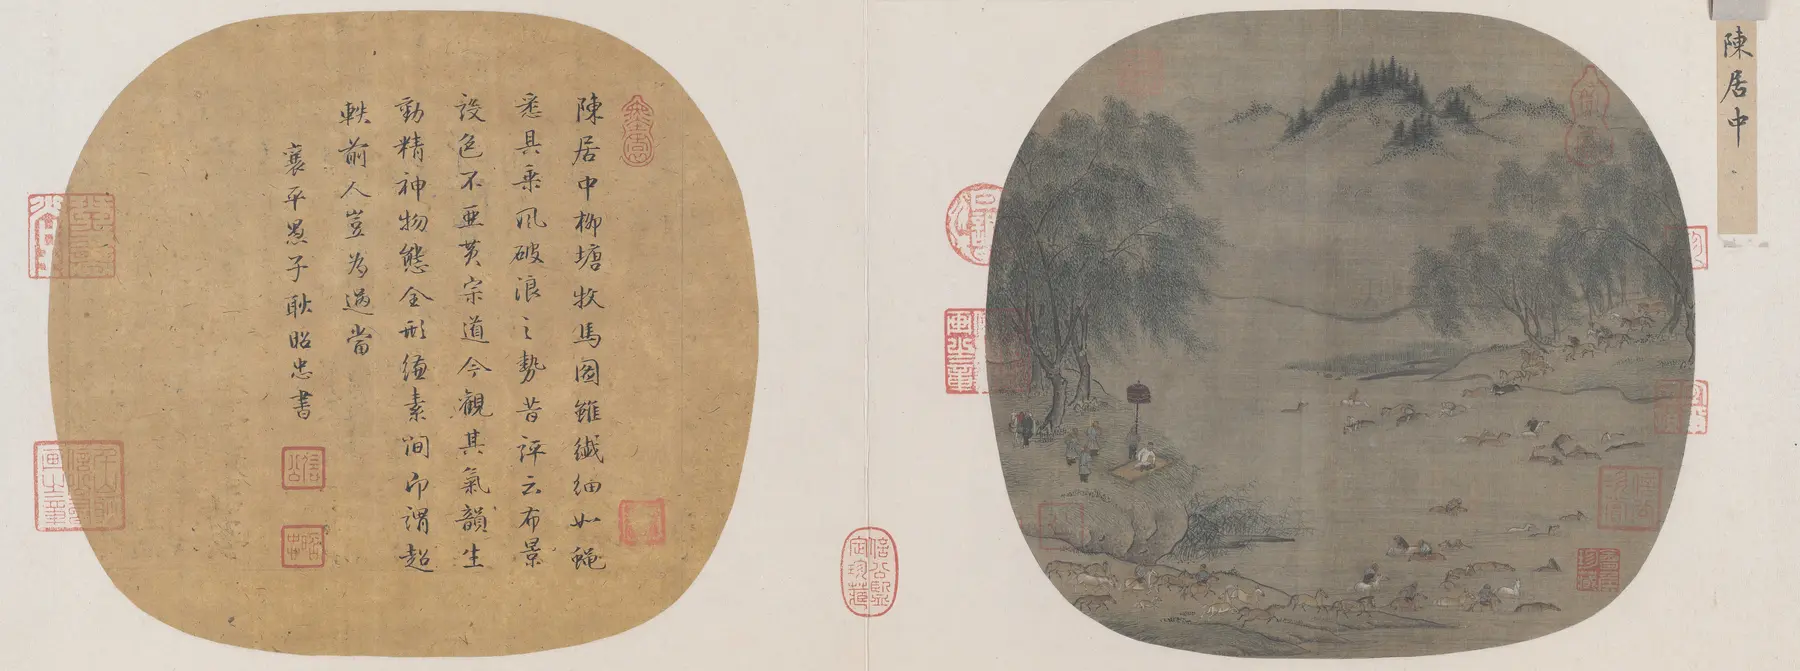 陳居中
陳居中柳塘牧馬圖雖纖細如蠅
悉具乘風破浪之勢昔評云布景
設色不亞黄宗道今觀其氣韻生
動精神物態全形縑素間卬謂超
軼前人豈為過當
襄平愚子耿昭忠書
信公鑒定珍藏
信公